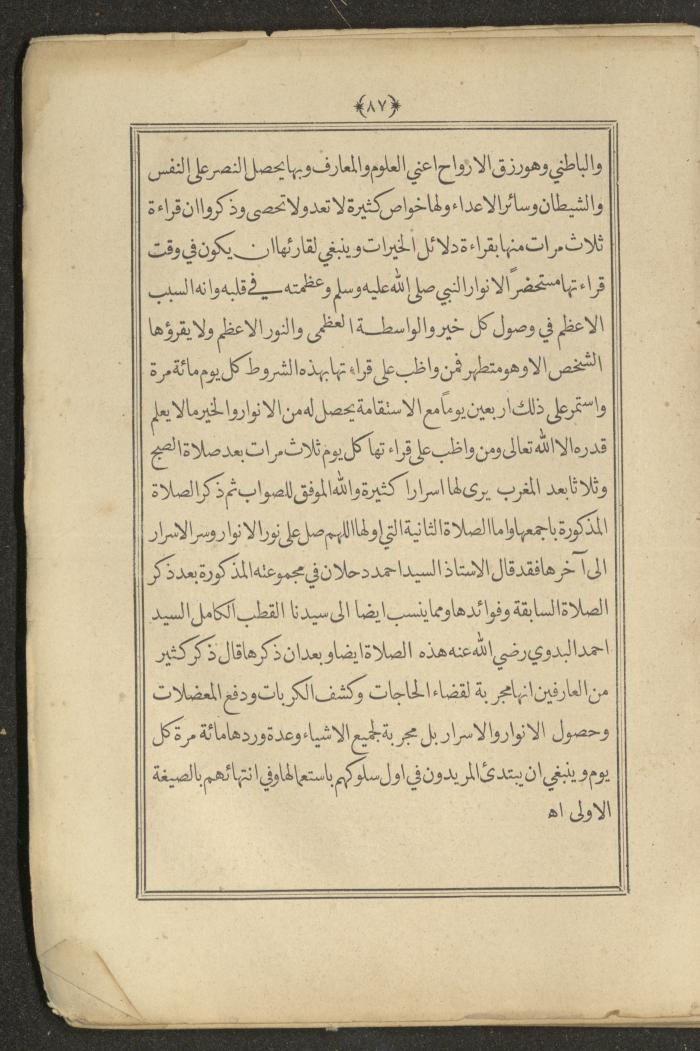 ﴿٨٧﴾
والباطني وهو رزق الارواح اعني العلوم والمعارف وبها يحصل النصر على النفس
والشيطان وسائر الاعداء ولها خواص كثيرة لا تعد ولا تحصى وذكروا ان قراءة
ثلاث مرات منها بقراءة دلائل الخيرات وينبغي لقارئها ان يكون في وقت
قراءتها مستحضراً لانوار النبي صلى الله عليه وسلم وعظمته في قلبه وانه السبب
الاعظم في وصول كل خير والواسطة العظمى والنور الاعظم ولا يقرؤها
الشخص الا وهو متطهر فمن واظب على قراءتها بهذه الشروط كل يوم مائة مرة
واستمر على ذلك اربعين يوماً مع الاستقامة يحصل له من الانوار والخير ما لا يعلم
قدره الا الله تعالى ومن واظب على قراءتها كل يوم ثلاث مرات بعد صلاة الصبح
وثلاثا بعد المغرب يرى لها اسرارا كثيرة والله الموفق للصواب ثم ذكر الصلاة
المذكورة باجمعها واما الصلاة الثانية التي اولها اللهم صل على نور الانوار وسر الاسرار
الى آخرها فقد قال الاستاذ السيد احمد دحلان في مجموعته المذكورة بعد ذكر
الصلاة السابقة وفوائدها ومما ينسب ايضا الى سيدنا القطب الكامل السيد
احمد البدوي رضي الله عنه هذه الصلاة ايضا وبعد ان ذكرها قال ذكر كثير
من العارفين انها مجربة لقضاء الحاجات وكشف الكربات ودفع المعضلات
وحصول الانوار والاسرار بل مجربة لجميع الاشياء وعدة وردها مائة مرة كل
يوم وينبغي ان يبتدئ المريدون في اول سلوكهم باستعمالها وفي انتهائهم بالصيغة
الاولى اه